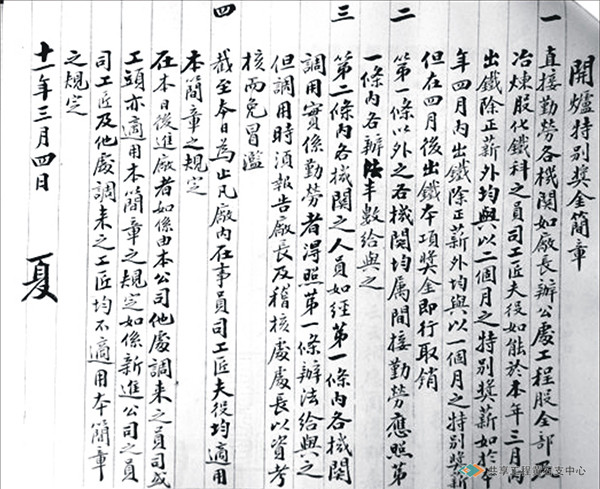 開爐特別獎金簡章
一 直接勤勞各機關如廠長辦公處工程股全部及
冶煉股化鐵科之員司工匠夫役如能於本年三月內
出鐵除正薪外均與以二個月之特別獎薪如於本
年四月內出鐵除正薪外均與以一個月之特別獎薪
但在四月後出鐵本項獎金即行取銷
二 第一條以外之各機關均屬間接勤勞應照第
一條內各辦法半數給與之
三 第二條內各機關之人員如經第一條內各機關
調用實係勤勞者得照第一條辦法給與之
但調用時須報告廠長及稽核處處長以資考
核而免冒濫
四 截至本日為止凡廠內在事員司工匠夫役均適用
本簡章之規定
在本日後進廠者如係由本公司他處調來之員司或
工頭亦適用本簡章之規定如係新進公司之員
司工匠及他處調來之工匠均不適用本簡章
之規定
十一年三月四日 夏
共享工程黃石支中心